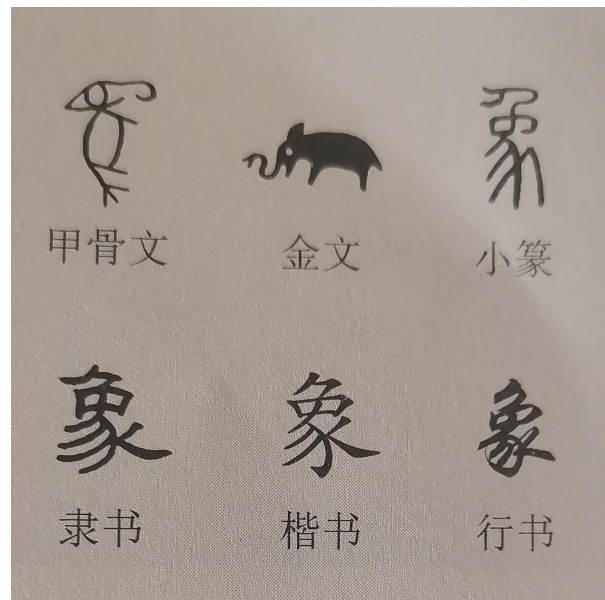 甲骨文 金文 小篆
象 象 象
隶书 楷书 行书